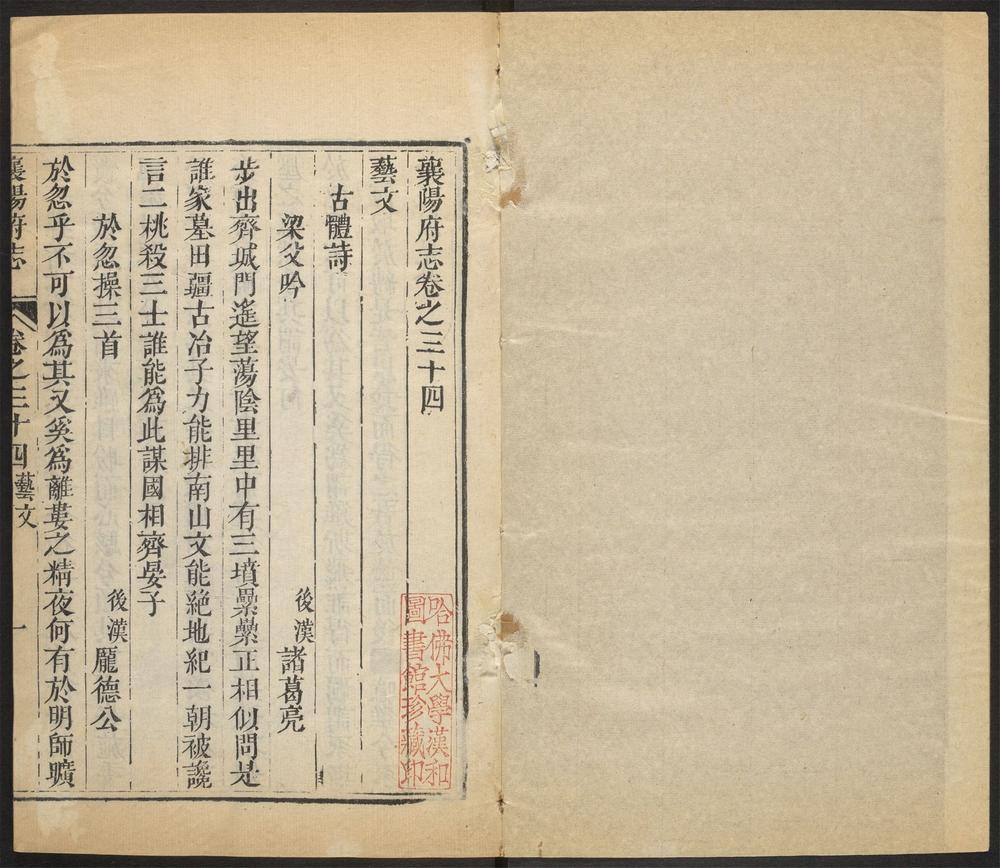 襄陽府志卷之三十四
藝文
古體詩
梁父吟　後漢諸葛亮
步出齊城門遙望蕩陰里里中有三墳纍纍正相似問是
誰家墓田疆古冶子力能排南山文能絕地紀一朝被讒
言二桃殺三士誰能爲此謀國相齊晏子
於忽操三首　後漢龐德公
於忽乎不可以爲其又奚爲離婁之精夜何有於明師曠
襄陽府志　卷之三十四藝文　一
哈佛大學漢和
圖書館珍藏印